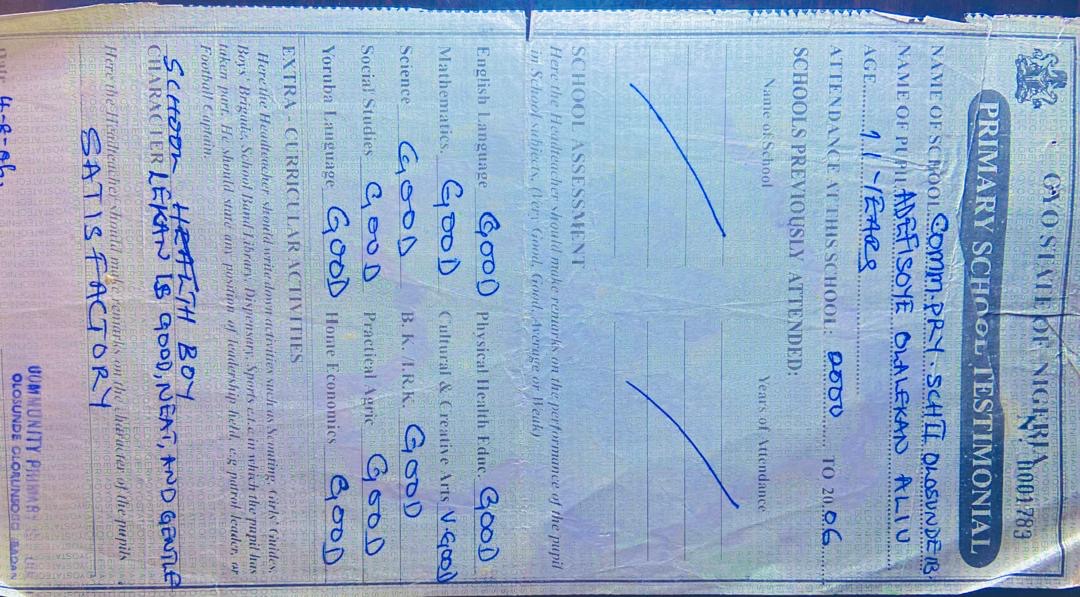 OYO STATE OF NIGERIA
No 0001789
PRIMARY SCHOOL TESTIMONIAL
NAME OF SCHOOL COMM. PRY. SCH II OLOSUNDE IB
NAME OF PUPIL ADEFISOYE OLALEKAN ALIU
AGE 11-YEARS
ATTENDANCE AT THIS SCHOOL: 2000 TO 2006
SCHOOLS PREVIOUSLY ATTENDED:
Name of School Years of Attendance
SCHOOL ASSESSMENT
Here the Headteacher should make remarks on the performance of the pupil
in School subjects, (Very Good, Good, Average or Weak)
English Language GOOD Physical Health Educ GOOD
Mathematics. GOOD Cultural & Creative Arts V.GOOD
Science GOOD B.K./I.R.K. GOOD
Social Studies GOOD Practical Agric GOOD
Yoruba Language GOOD Home Economics GOOD
EXTRA - CURRICULAR ACTIVITIES
Here the Headteacher should write down activities such as Scouting, Girls' Guides,
Boys' Brigade, School Band Library, Dispensary, Sports e.t.c in which the pupil has
taken part. He should state any position of leadership held, e.g patrol leader, or
Football Captain.
SCHOOL HEALTH BOY
CHARACTER LEKAN IS GOOD, NEAT, AND GENTLE
Here the Headteacher should make remarks on the character of the pupils
SATISFACTORY
COMMUNITY PRIMARY
OLOSUNDE OLORUNDA
Date 4-8-06